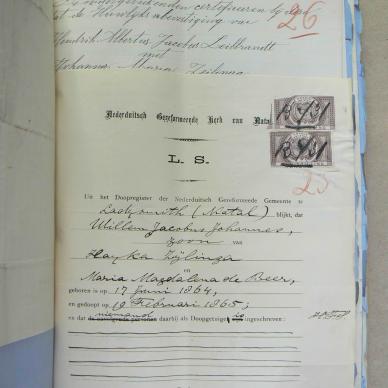 certificeren
dat de Huwelijksbevestiging van
26
Hendrik Albertus Jacobus Leibbrandt
met
Johanna Maria
Nederduitsch Gereformeerde Kerk van Natal
L. S.
25
Uit het Doopregister der Nederduitsch Gereformeerde Gemeente te
Ladysmith (Natal) blijkt, dat
Willem Jacobus Johannes,
zoon van
Hayka Zijlinga
en
Maria Magdalena de Beer,
geboren is op 17 Juni 1864,
en gedoopt op 19 Februari 1865;
niemand
en dat de navolgende personen daarbij als Doopgetuigen is ingeschreven: